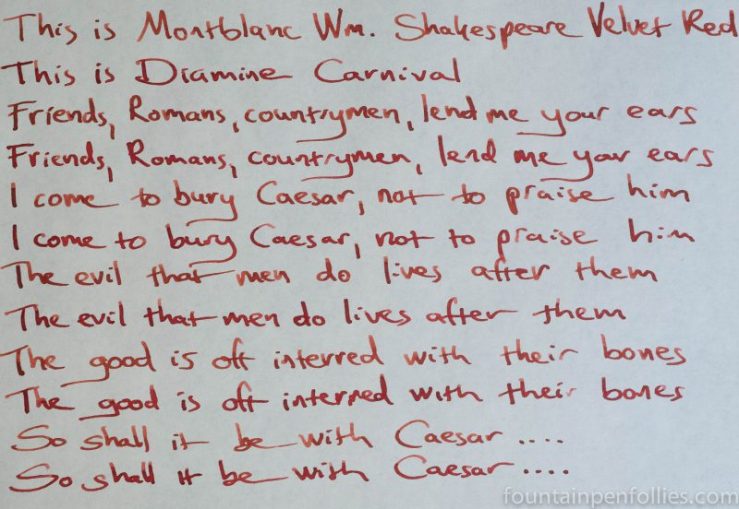 This is Montblanc Wm. Shakespeare Velvet Red
This is Diamine Carnival
Friends, Romans, countrymen, lend me your ears
Friends, Romans, countrymen, lend me your ears
I come to bury Caesar, not to praise him
I come to bury Caesar, not to praise him
The evil that men do lives after them
The evil that men do lives after them
The good is oft interred with their bones
The good is oft interred with their bones
So shall it be with Caesar ....
So shall it be with Caesar ....
fountainpenfollies.com